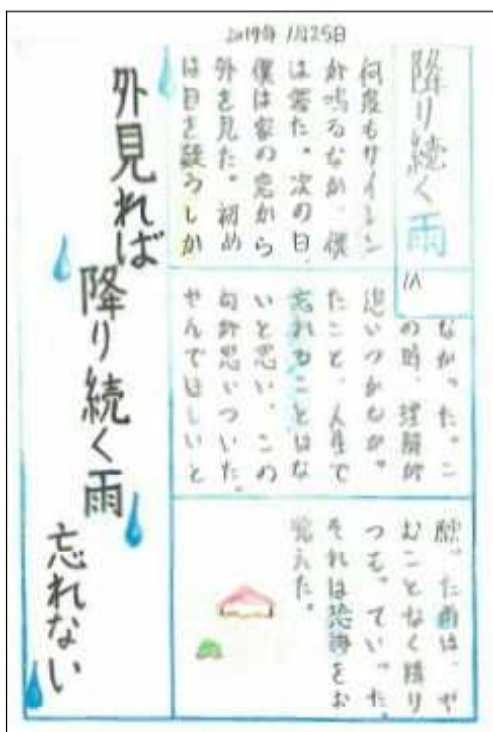 2019年 11月25日
降り続く雨
何度もサイレン
が鳴るなか、僕
は寝た。次の日、
僕は家の窓から
外を見た。初め
は目を疑うしか
なかった。こ
の時、理解が
追いつかなか
たこと、人生で
忘れることはな
いと思い、この
句が思いついた。
やんでほしいと
願った雨は、や
むことなく降り
つもっていった。
それは恐怖をお
覚えた。
外見れば
降り続く雨
忘れない